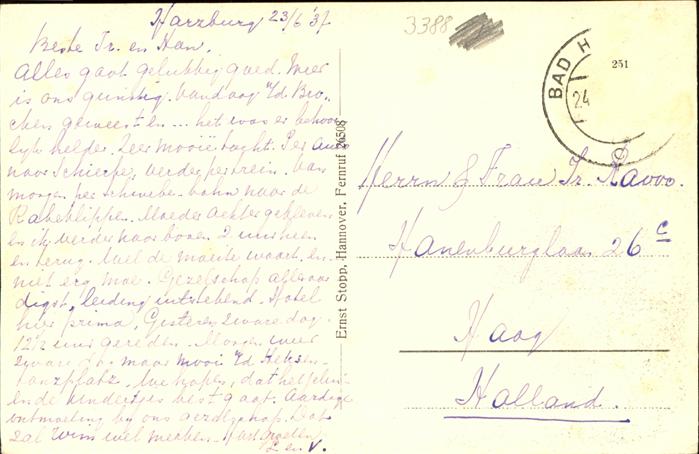 Harzburg 23/6 '37
3388
Beste Tr. en Han.
Alles gaat gelukkig goed. Weer
is ons gunstig. Vandaag n/d Bro-
cken geweest en ... het was er behoor
lijk helder. Zeer mooie tocht. Per auto
naar Schierke, verder per trein. Van
morgen per schwebebahn naar de
Rabeklippen. Moeder achter gebleven
en ik verder naar boven 2 uur heen
en terug. Wel de moeite waard, en
niet erg moe. Gezelschap alleraar
digst, leiding uitstekend. Hotel
hier prima. Gisteren zware dag
12½ uur gereden. Morgen weer
zware do. maar mooi n/d Heksen-
tanzplatz. We hopen, dat het jelui
en de kindertjes best gaat. Aardige
ontmoeting bij ons gezelschap. Dat
zal Wim wel merken. Hart. groeten
en V.
Ernst Stopp, Hannover, Fernruf 26508
BAD H
24
251
Herrn & Frau Tr.
Hanenburglaan 26 c
Haag
Holland.